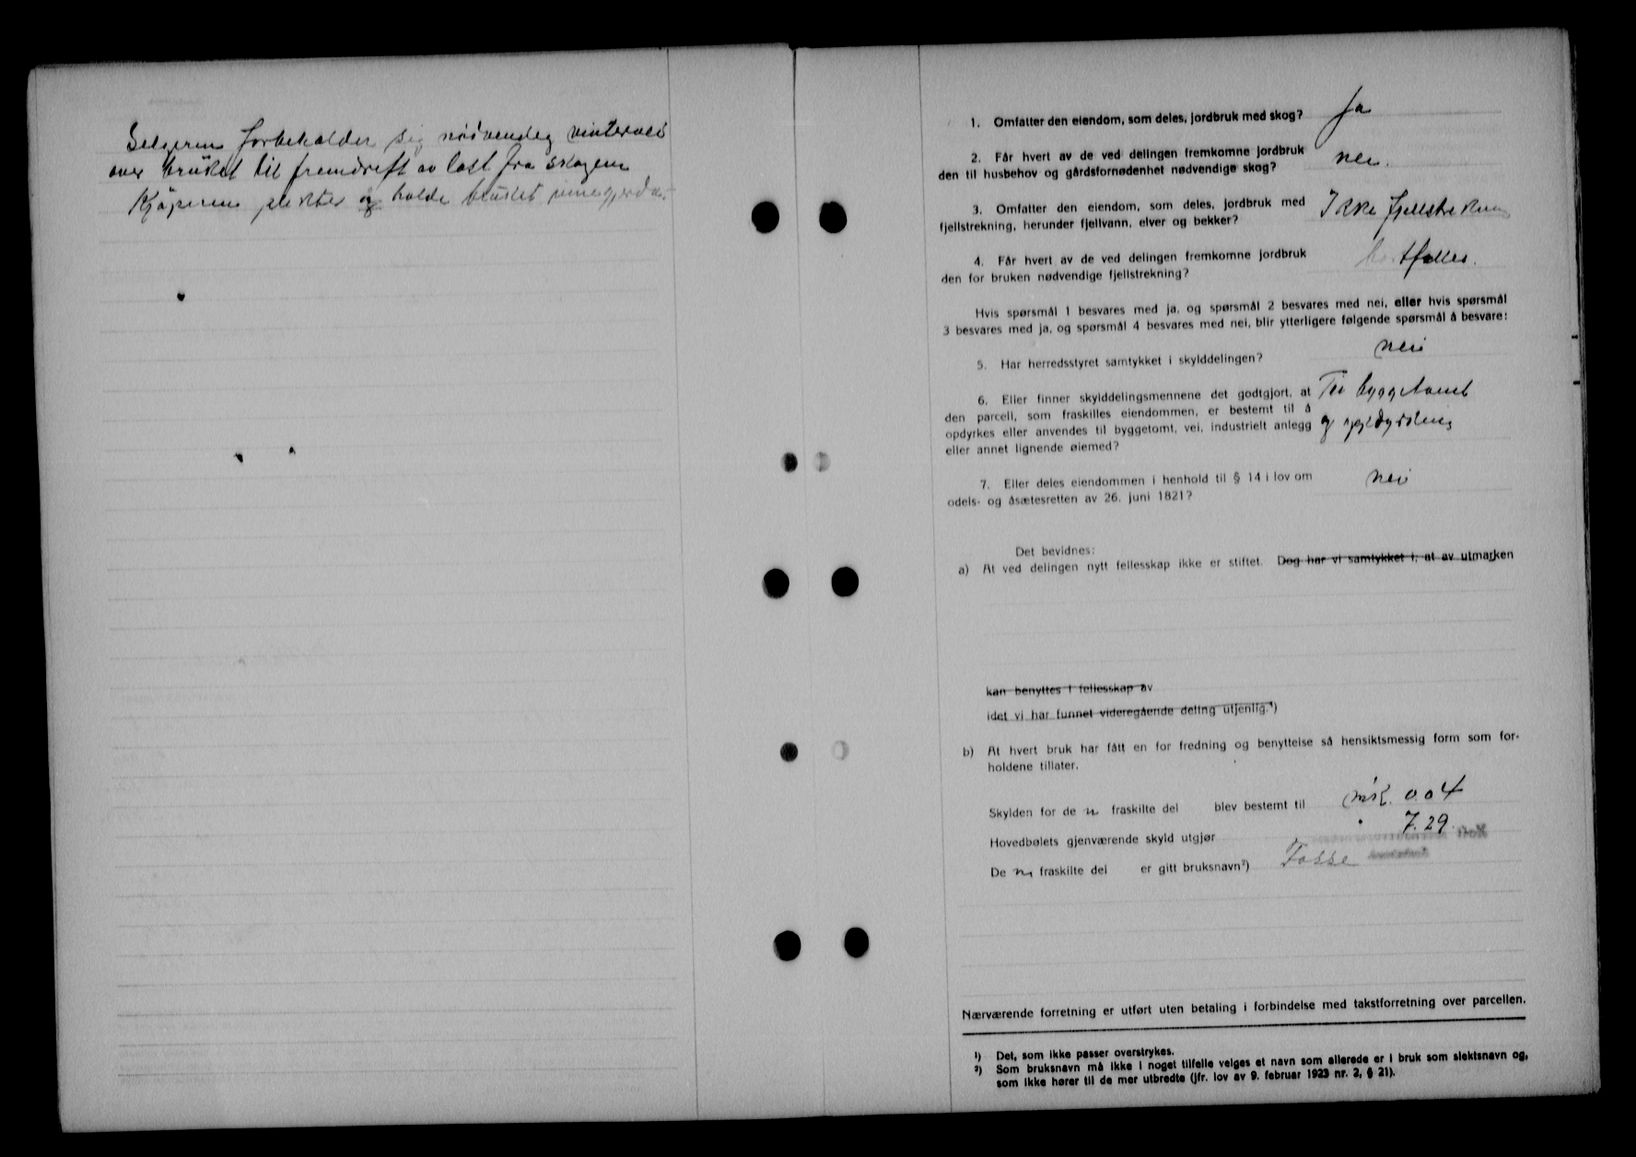 Selgeren forbeholder sig nödvendig vintervei
over bruket til fremdrift av last fra skogen
Kjöperen plikter å holde bruket inngjerdet.
1. Omfatter den eiendom, som deles, jordbruk med skog? Ja
2. Får hvert av de ved delingen fremkomne jordbruk
den til husbehov og gårdsfornødenhet nødvendige skog? nei.
3. Omfatter den eiendom, som deles, jordbruk med
fjellstrekning, herunder fjellvann, elver og bekker? Ikke fjellstrekning
4. Får hvert av de ved delingen fremkomne jordbruk
den for bruken nødvendige fjellstrekning? bortfaller.
Hvis spørsmål 1 besvares med ja, og spørsmål 2 besvares med nei, eller hvis spørsmål
3 besvares med ja, og spørsmål 4 besvares med nei, blir ytterligere følgende spørsmål å besvare:
5. Har herredsstyret samtykket i skylddelingen? nei
6. Eller finner skylddelingsmennene det godtgjort, at Til byggetomt
den parcell, som fraskilles eiendommen, er bestemt til å
opdyrkes eller anvendes til byggetomt, vei, industrielt anlegg og
eller annet lignende øiemed?
7. Eller deles eiendommen i henhold til § 14 i lov om nei
odels- og åsætesretten av 26. juni 1821?
Det bevidnes:
a) At ved delingen nytt fellesskap ikke er stiftet. Dog har vi samtykket i, at av utmarken
kan benyttes i fellesskap av
idet vi har funnet videregående deling utjenlig.¹)
b) At hvert bruk har fått en for fredning og benyttelse så hensiktsmessig form som for-
holdene tillater.
Skylden for de n fraskilte del blev bestemt til mrk. 0.04
Hovedbølets gjenværende skyld utgjør " 7.29
De n fraskilte del er gitt bruksnavn²) Fosse
Nærværende forretning er utført uten betaling i forbindelse med takstforretning over parcellen.
¹) Det, som ikke passer overstrykes.
²) Som bruksnavn må ikke i noget tilfelle velges et navn som allerede er i bruk som slektsnavn og,
som ikke hører til de mer utbredte (jfr. lov av 9. februar 1923 nr. 2, § 21).